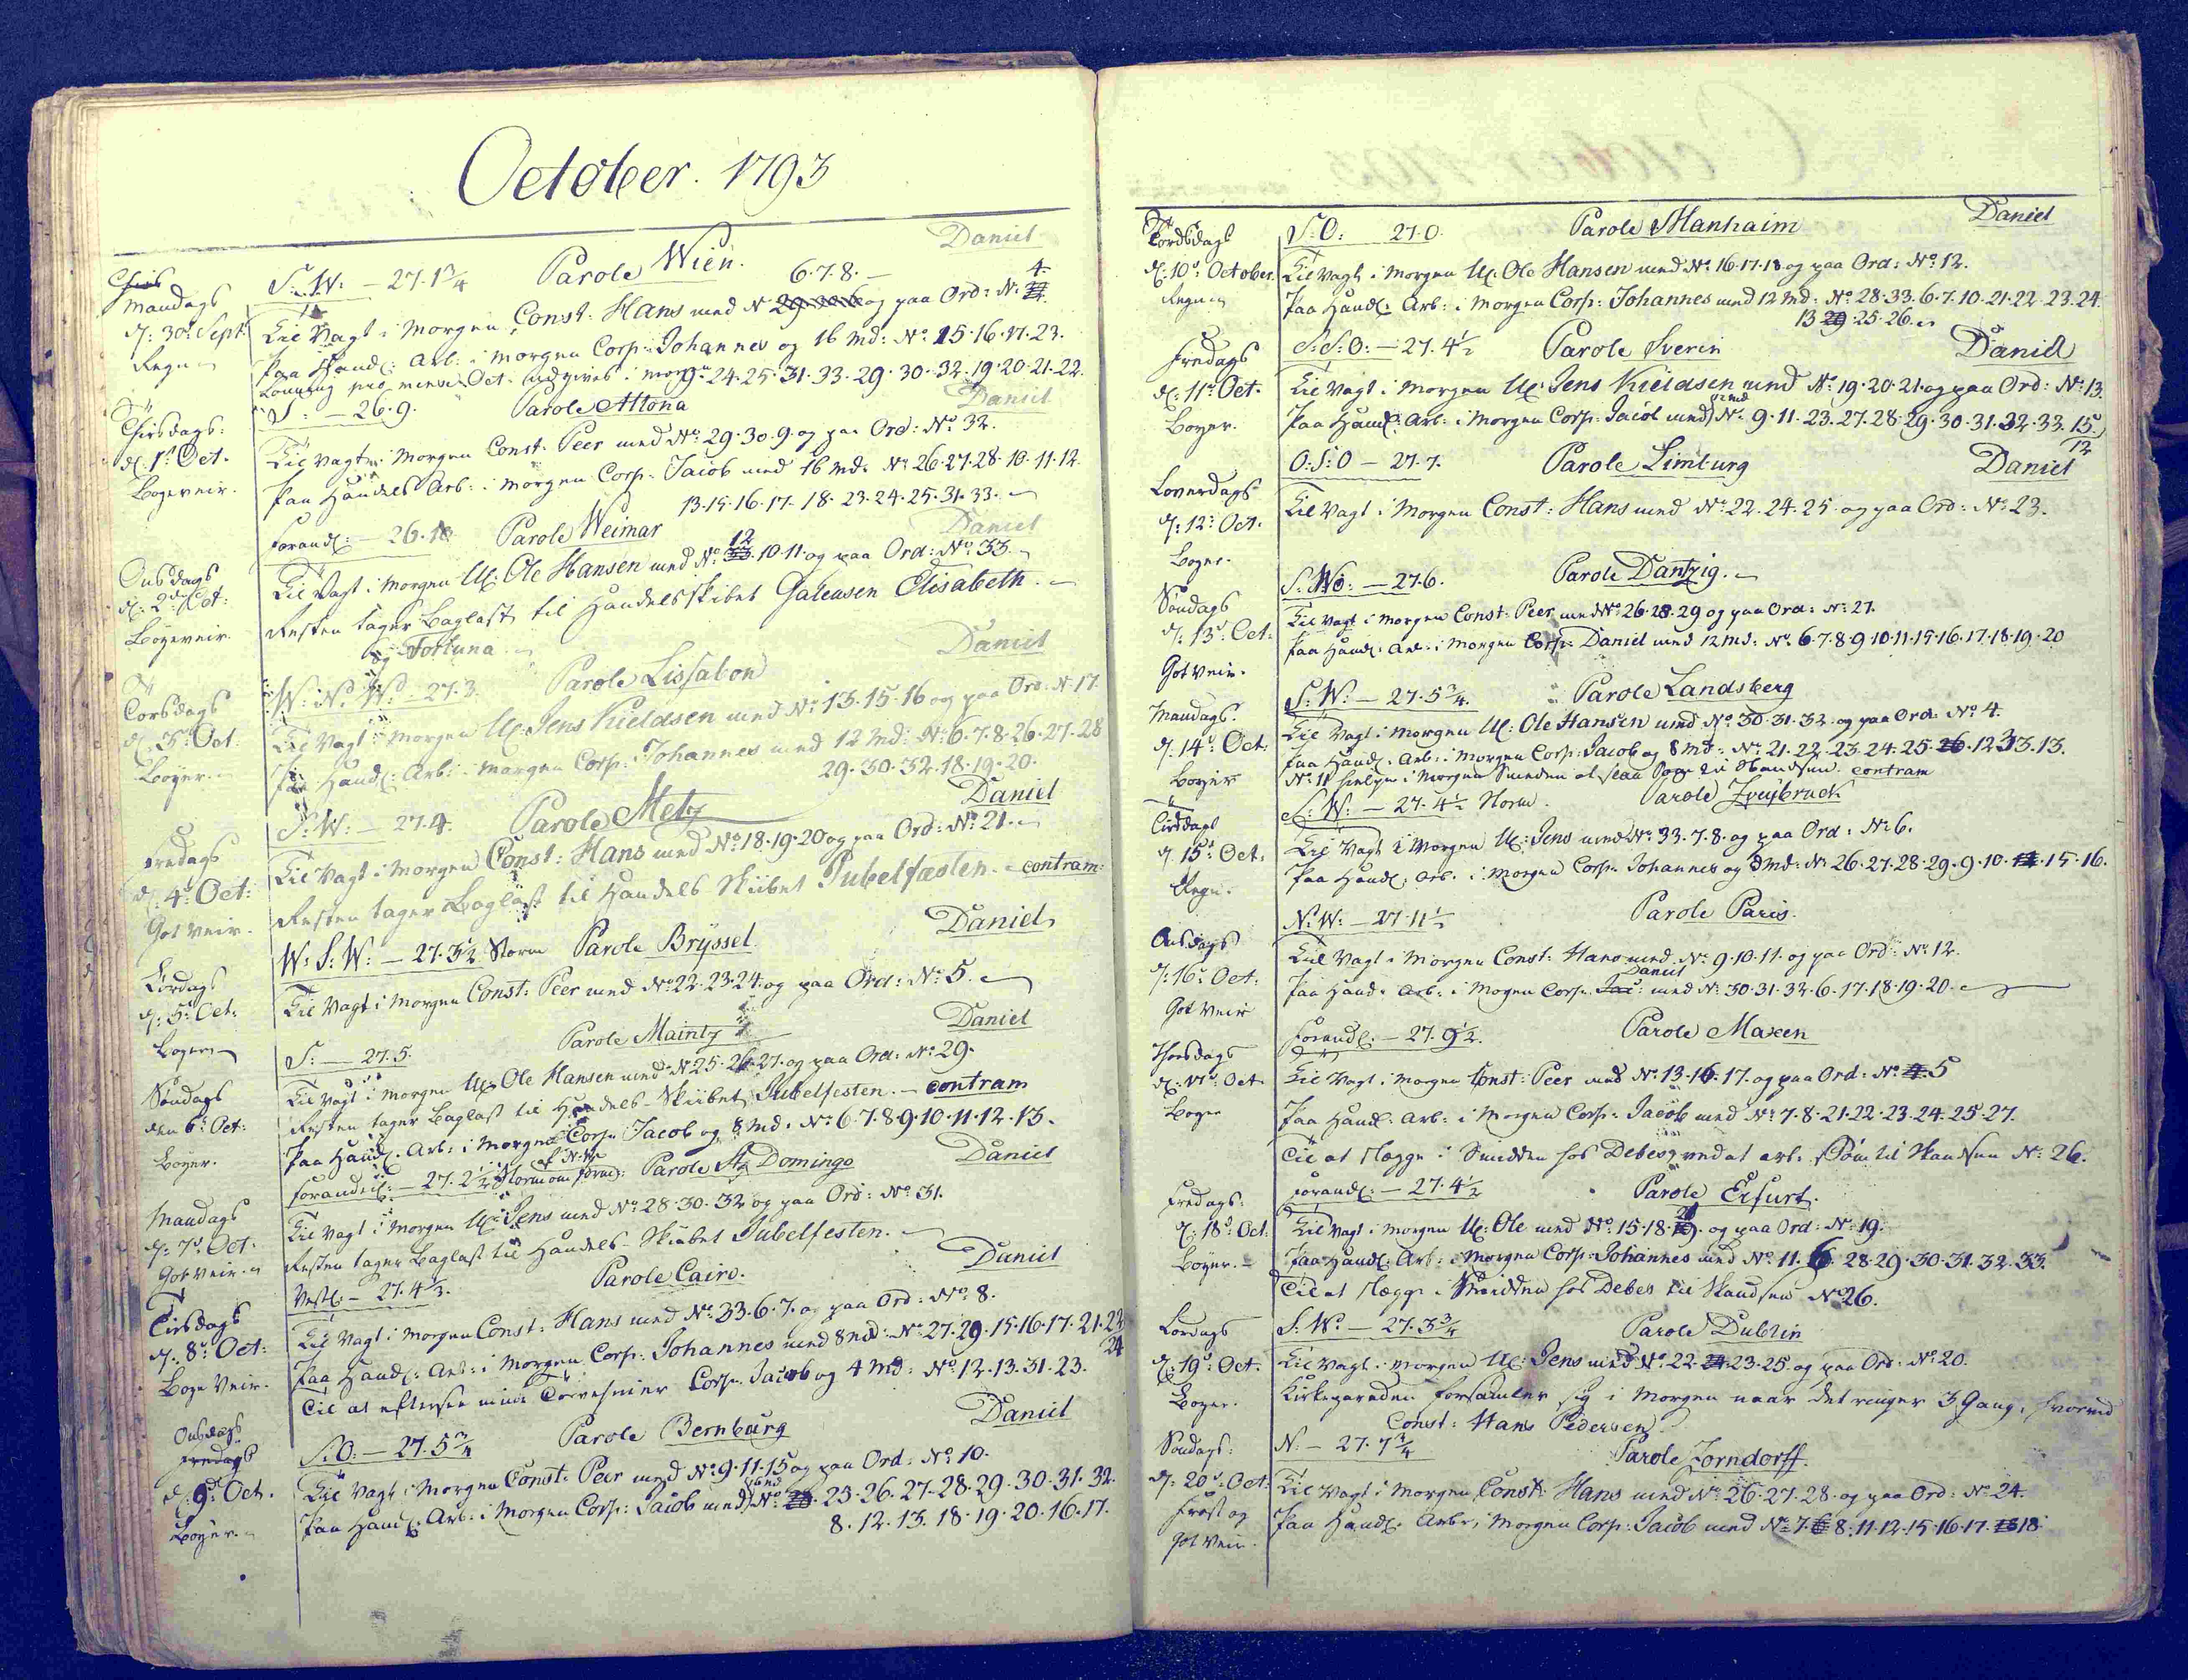 October. 1793
Mandags
d: 30t Sept
Regn
S: W: — 27. 1 3/4 Parole Wien. Daniel
6. 7. 8. — 4.
Til Vagt i Morgen Const. Hans med N og paa Ord: N:
Paa Handl: Arb: i Morgen Corp: Johannes og 16 Md: No: 15. 16. 17. 23.
Lonning pro mense Oct. udgives i morgen 24. 25. 31. 33. 29. 30. 32. 19. 20. 21. 22.
Thirsdags:
d: 1t Oct.
Bogeveir.
S: — 26. 9. Parole Altona Daniel
Til Vagt i Morgen Const. Peer med No: 29. 30. 9. og paa Ord: No: 32.
Paa Handels Arb: i Morgen Corp: Jacob med 16 Md: No: 26. 27. 28. 10. 11. 12.
13. 15. 16. 17. 18. 23. 24. 25. 31. 33.
Onsdags
d: 2d Oct:
Bogeveir.
forandl: — 26. 10 Parole Weimar Daniel
Til Vagt i Morgen Uc: Ole Hansen med No: 12 10. 11 og paa Ord: No: 33.
Resten tager Baglast til Handelsskibet Galeasen Elisabeth.
og Fortuna
Torsdags
d. 3d Oct.
Boger.
W: N: W: — 27. 3. Parole Lissabon Daniel
Til Vagt i Morgen Uc: Jens Kieldsen med No: 13. 15. 16 og paa Ord: N: 17.
Paa Handl: Arb: i Morgen Corp: Johannes med 12 Md: No: 6. 7. 8. 26. 27. 28
29. 30. 32. 18. 19. 20.
Fredags
d: 4d Oct:
Got Veir.
S: W: — 27. 4. Parole Metz Daniel
Til Vagt i Morgen Const: Hans med No: 18. 19. 20 og paa Ord: No: 21.
Resten tager Baglast til Handels Skibet Jubelfæsten. — contram:
Lørdags
d: 5d Oct:
Boger
W: S: W: — 27. 3 1/2 Storm Parole Bryssel. Daniel
Til Vagt i Morgen Const: Peer med No: 22. 23. 24. og paa Ord: No: 5.
Søndags
den 6d Oct:
Boger.
S: — 27. 5. Parole Maintz Daniel
Til Vagt i Morgen Uc: Ole Hansen med N 25. 26. 27. og paa Ord: No: 29.
Resten tager Baglast til Handels Skibet Jubelfesten. — contram
Paa Handl: Arb: i Morgen Corp: Jacob og 8 Md: No: 6. 7. 8. 9. 10. 11. 12. 13.
Mandags
d: 7d Oct:
Got Veir.
forandrl: — 27. 2 1/2 Storm Parole St Domingo Daniel
Til Vagt i Morgen Uc: Jens med No: 28. 30. 32 og paa Ord: No: 31.
Resten tager Baglast til Handels Skibet Jubelfesten.
Tirsdags
d: 8d Oct:
Boge Veir.
Vestl: — 27. 4 1/2. Parole Cairo. Daniel
Til Vagt i Morgen Const: Hans med No: 33. 6. 7. og paa Ord: No: 8.
Paa Handl: Arb: i Morgen Corp: Johannes med 8 Md: No: 27. 29. 15. 16. 17. 21. 22
24
Til at eftersee mine Corp: Jacob og 4 Md: No: 12. 13. 31. 23.
Onsdags
Fredags
d: 9d Oct.
Boger.
S: O: — 27. 5 3/4 Parole Bernburg Daniel
Til Vagt i Morgen Const: Peer med No: 9. 11. 15 og paa Ord: No: 10.
Paa Handl: Arb: i Morgen Corp: Jacob med No: 23. 26. 27. 28. 29. 30. 31. 32.
8. 12. 13. 18. 19. 20. 16. 17.
Tordsdags
d: 10d October.
Regn
S: O: 27. 0. Parole Manhaim Daniel
Til Vagt i Morgen Uc: Ole Hansen med No: 16. 17. 18 og paa Ord: No: 12.
Paa Handl: Arb: i Morgen Corp: Johannes med 12 Md: No: 28. 33. 6. 7. 10. 21. 22. 23. 24.
13 25. 26.
Fredags
d: 11d Oct.
Boger.
S: S: O: — 27. 4 1/2 Parole Sverin Daniel
Til Vagt i Morgen Uc: Jens Kieldsen med No: 19. 20. 21. og paa Ord: No: 13.
Paa Handl: Arb: i Morgen Corp: Jacob med 12 Md No: 9. 11. 23. 27. 28. 29. 30. 31. 32. 33. 15.
12
Loverdags
d: 12d Oct.
Boger.
O: S: O — 27. 7. Parole Limburg Daniel
Til Vagt i Morgen Const: Hans med No: 22. 24. 25. og paa Ord: No: 23.
Søndags
d: 13d Oct.
Got Veir.
S: W: — 27. 6. Parole Dantzig.
Til Vagt i Morgen Const: Peer med No: 26. 28. 29 og paa Ord: N: 27.
Paa Handl: Arb: i Morgen Corp: Daniel med 12 Md: No: 6. 7. 8. 9. 10. 11. 15. 16. 17. 18. 19. 20
Mandags.
d: 14d Oct:
Boger
S: W: — 27. 5 3/4. Parole Landsberg
Til Vagt i Morgen Uc: Ole Hansen med No: 30. 31. 32. og paa Ord: No: 4.
Paa Handl: Arb: i Morgen Corp: Jacob og 8 Md: No: 21. 22. 23. 24. 25. 12. 33. 13.
No: 11 hielper i Morgen Smeden at slaa til Skandsen. contram
Tirsdags
d. 15d Oct.
Regn.
S: W: — 27. 4 1/2 Storm. Parole Zveybruck
Til Vagt i Morgen Uc: Jens med No: 33. 7. 8. og paa Ord: No: 6.
Paa Handl: Arb: i Morgen Corp: Johannes og 8 Md: No: 26. 27. 28. 29. 9. 10. 15. 16.
Onsdags
d: 16d Oct:
Got Veir
N: W: — 27. 11 1/2 Parole Paris.
Til Vagt i Morgen Const: Hans med No: 9. 10. 11. og paa Ord: No: 12.
Daniel
Paa Handl: Arb: i Mogen Corp: Jac: med No: 30. 31. 32. 6. 17. 18. 19. 20.
Thorsdags
d: 17d Oct
Boger
forandl: — 27. 9 1/2. Parole Maxen
Til Vagt i Morgen Const: Peer med No: 13. 16. 17. og paa Ord: No: 4. 5
Paa Handl: Arb: i Morgen Corp: Jacob med No: 7. 8. 21. 22. 23. 24. 25. 27.
Til at slegge i Smidden hos Debes ved at arb: Søm til Skandsen No: 26.
Fredags:
d: 18d Oct
Boger.
forandl: — 27. 4 1/2 Parole Erfurt.
Til Vagt i Morgen Uc: Ole med No: 15. 18. og paa Ord: No: 19.
Paa Handl: Arb: i Morgen Corp: Johannes med No: 11. 6. 28. 29. 30. 31. 32. 33.
Til at slegge i Smidden hos Debes til Skandsen No 26.
Lordags
d: 19d Oct.
Boger.
S: W: — 27. 3 3/4 Parole Dublin
Til Vagt i Morgen Uc: Jens med No: 22. 23. 25. og paa Ord: No: 20.
Kirkeparaden forsamler sig i Morgen naar det ringer 3 Gang, hvorved
Const: Hans Pedersen.
Søndags:
d: 20d Oct:
Frost og
Got Veir.
N: — 27. 7 3/4 Parole Zorndorff.
Til Vagt i Morgen Const: Hans med No: 26. 27. 28. og paa Ord: No: 24.
Paa Handl: Arb: i Morgen Corp: Jacob med No: 7. 8. 11. 12. 15. 16. 17. 18